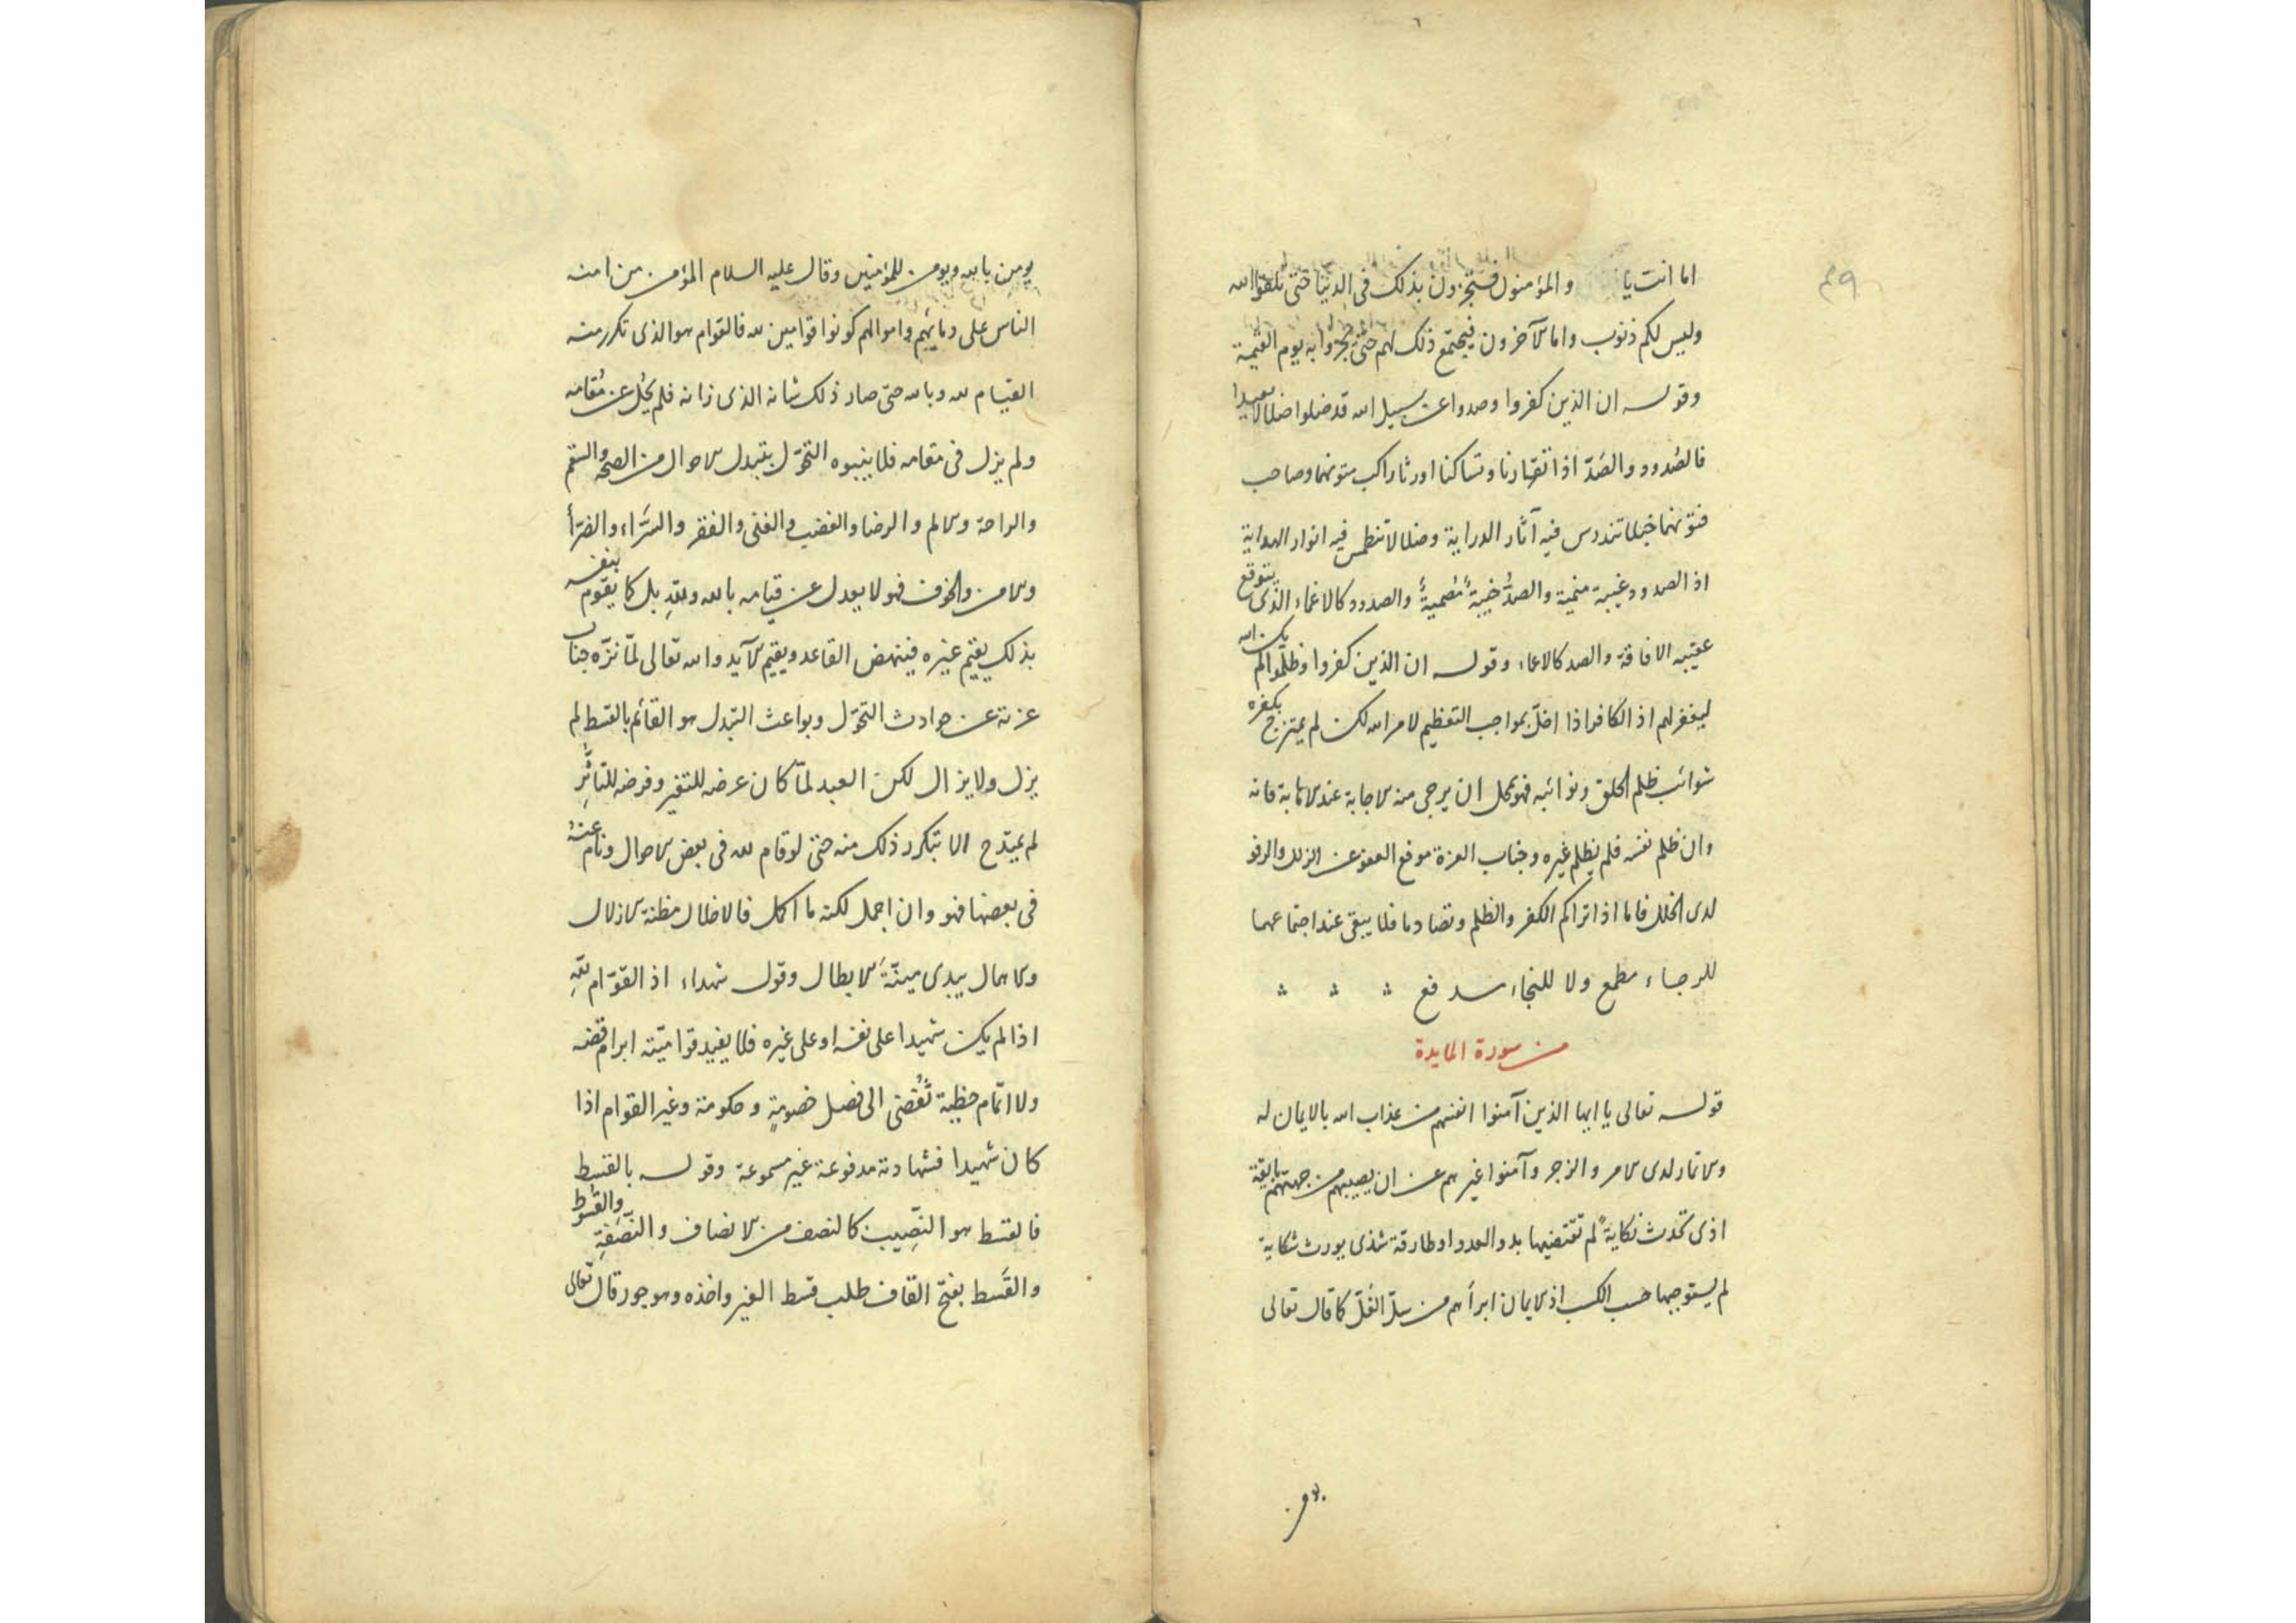 اما انت يا والمؤمنون فتجزون بذلك فى الدنيا حتى تلقوا الله
وليس لكم ذنوب واما الآخرون فيجتمع ذلك لهم حتى يجزوا به يوم القيمة
وقوله ان الذين كفروا وصدوا عن سبيل الله قد ضلوا ضلالا بعيدا
فالصدود والصد اذا تقارنا وتساكنا اورثا راكب متونهما وصاحب
فتونهما خبالا تندرس فيه آثار الدراية وضلالا تنطمس فيه انوار الهداية
اذ الصدود غيبة منمية والصد خيبة مصمية والصدود كالاغماء الذى يتوقع
عقيبه الافاقة والصد كالاعماء وقوله ان الذين كفروا وظلموا لم يكن الله
ليغفر لهم اذ الكافر اذا اخل بمواجب التعظيم لامر الله لكن لم يمتزج بكفره
شوائب ظلم الخلق ونوائبه فهو بمحل ان يرجى منه الاجابة عند الانابة فانه
وان ظلم نفسه فلم يظلم غيره وجناب العزة موقع العفو عن الزلل والرفو
لدى الخلل فاما اذا تراكم الكفر والظلم وتصادما فلا يبقى عند اجتماعهما
للرجاء مطمع ولا للنجاء مدفع
من سورة المايدة
قوله تعالى يا ايها الذين آمنوا انفسهم من عذاب الله بالايمان له
والاتمار لدى الامر والزجر وآمنوا غيرهم عن ان يصيبهم من جهتهم بايقة
اذى تحدث نكاية لم تقتضيها بدو العدو او طارقة شذى يورث شكاية
لم يستوجبها حسب الكسب اذ الايمان ابرأهم من سلّ الغلّ كما قال تعالى
يومن بالله ويومن للمؤمنين وقال عليه السلام المؤمن من امنه
الناس على دمائهم واموالهم كونوا قوامين لله فالقوام هو الذى تكرر منه
القيام لله وبالله حتى صار ذلك شانه الذى زانه فلم يحُل عن مُقامه
ولم يزل فى مقامه فلا ينبوه التحوّل بتبدل الاحوال من الصحة والسقم
والراحة والالم والرضا والغضب والغنى والفقر والسّراء والضرّاء
والامن والخوف فهو لا يعدل عن قيامه بالله ولله بل كما يقوم بنفسه
بذلك يقيم غيره فينهض القاعد ويقيم الآيد والله تعالى لمّا نزّه جناب
عزته عن حوادث التحوّل وبواعث التبدل هو القائم بالقسط لم
يزل ولا يزال لكن العبد لمّا كان عرضه للتغير وفرضه للتاثّر
لم يمتدح الا بتكرر ذلك منه حتى لو قام لله فى بعض الاحوال ونام عنه
فى بعضها فهو وان اجمل لكنه ما اكمل فالاخلال مظنة الازلال
والاهمال يبدى ميتة الابطال وقوله شهداء اذ القوّام لله
اذا لم يكن شهيدا على نفسه او على غيره فلا يفيد قواميّته ابرام قضه
ولا اتمام خطبة تُفضى الى فصل خصومة وحكومة وغير القوام اذا
كان شهيدا فشهادته مدفوعة غير مسموعة وقوله بالقسط
فالقسط هو النّصيب كالنصف من الانصاف والنصفة والقسوط
والقَسط بفتح القاف طلب قسط الغير واخذه وهو جور قال تعالى